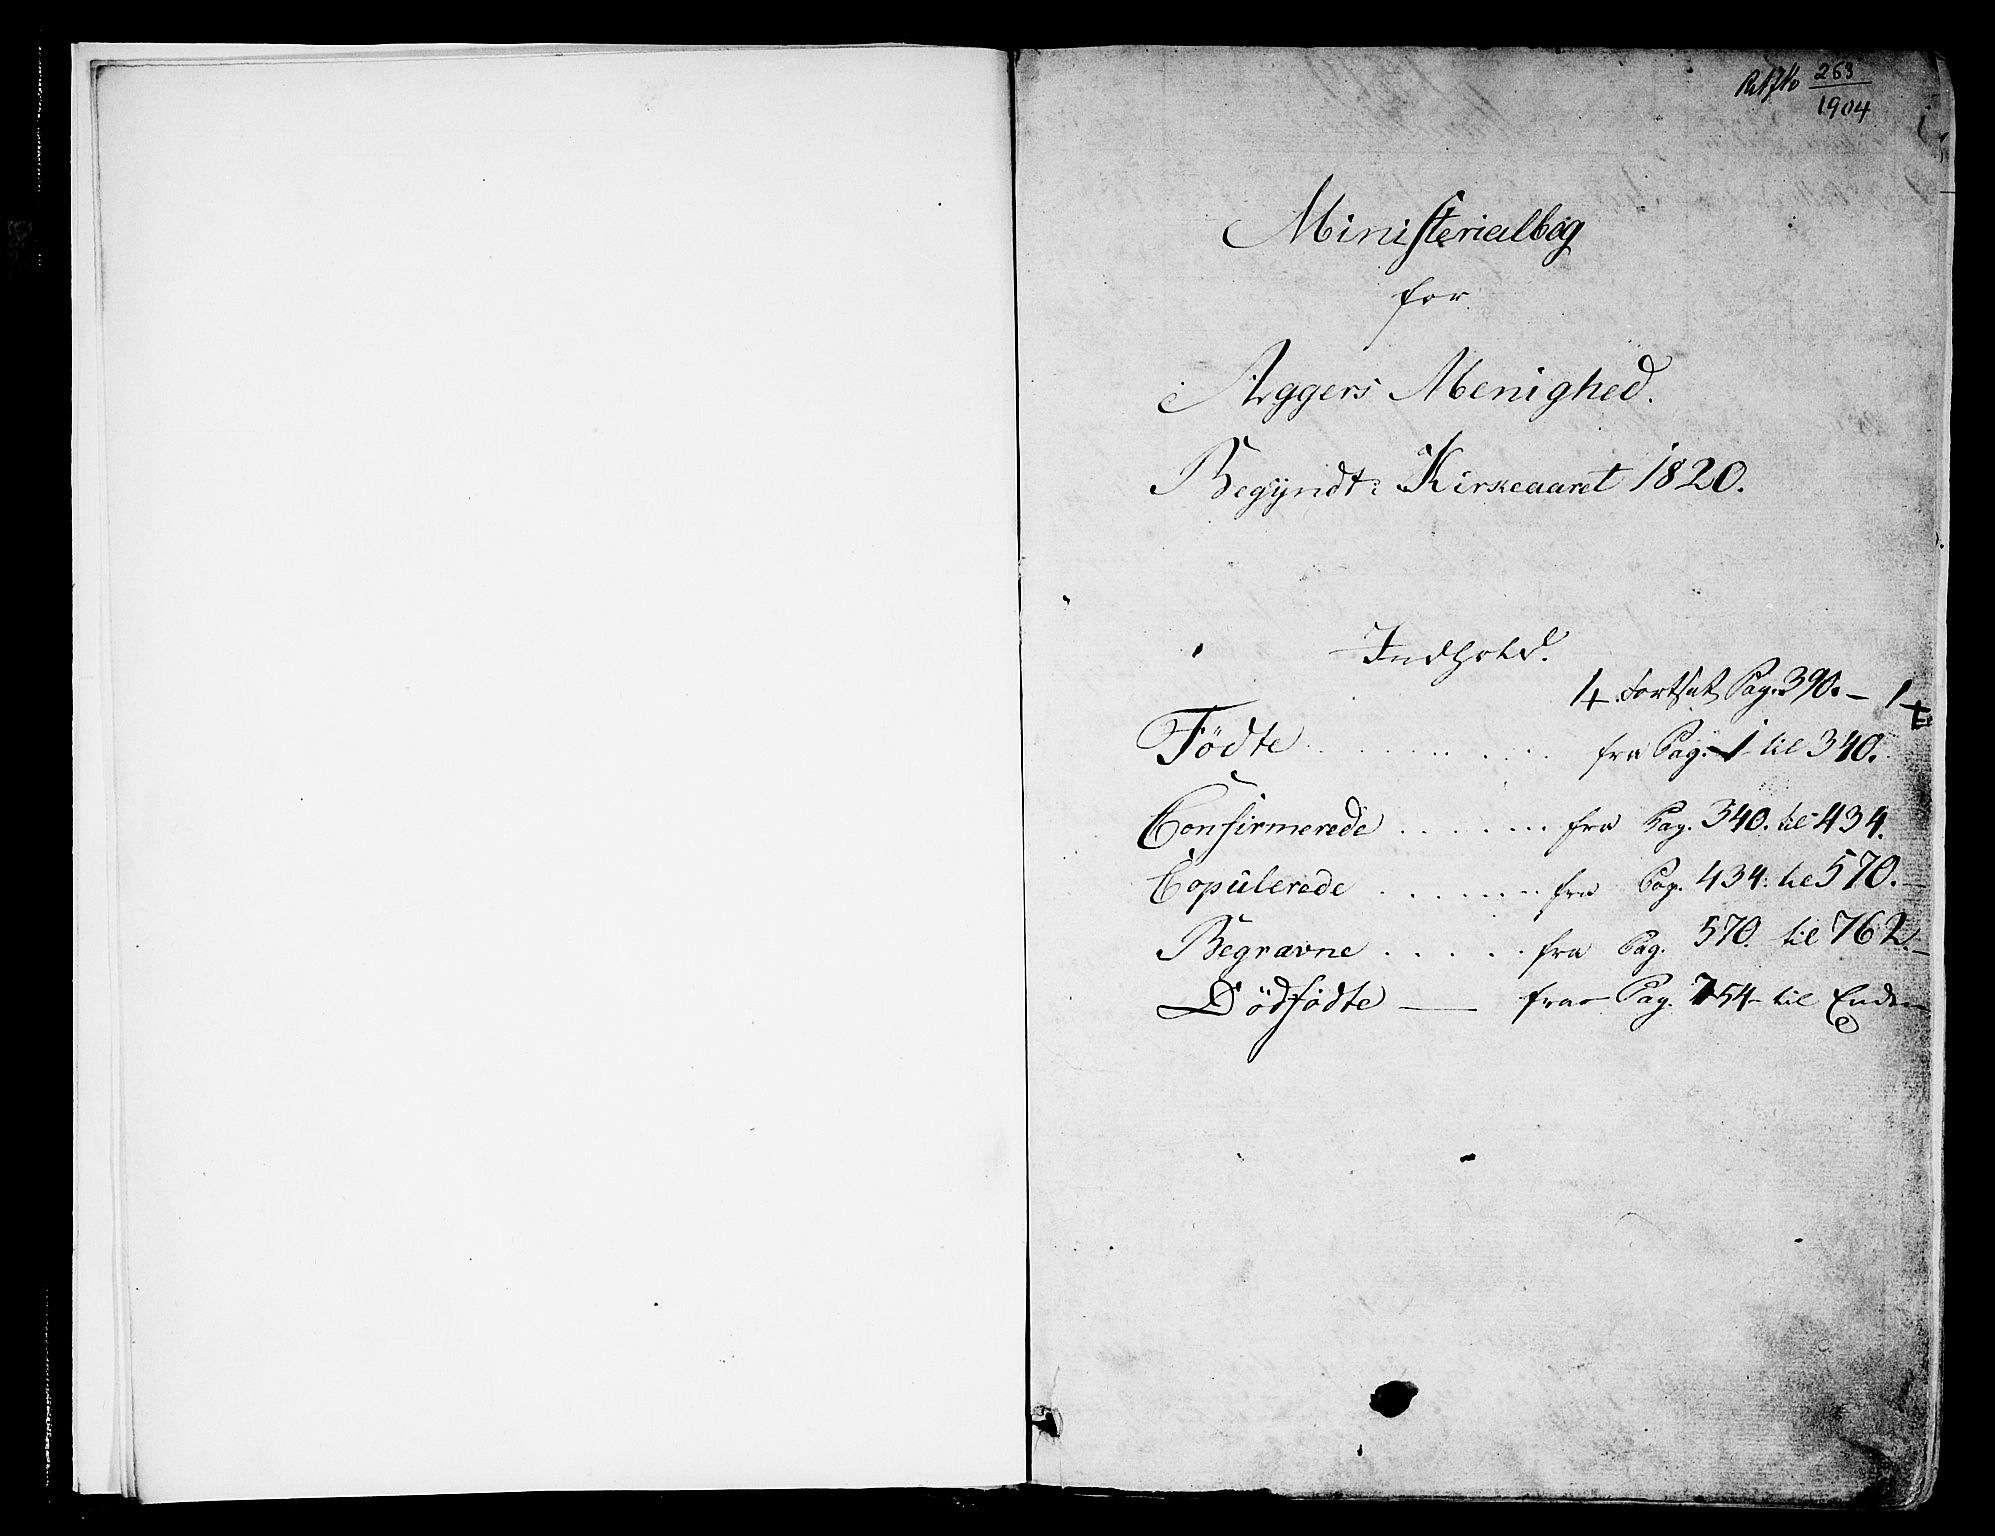 263
1904
Ministerialbog
for
Aggers Menighed.
Begyndt i Kirkeaaret 1820.
Indhold.
Fortsat Pag. 390. –
Födte . . . . . . . . fra Pag. 1 til 340.
Confirmerede . . . . . . . fra Pag. 340. til 434.
Copulerede . . . . . . . fra Pag. 434. til 570. –
Begravne . . . . . fra Pag. 570. til 762. –
Dödfödte — fra Pag. 754 til Enden